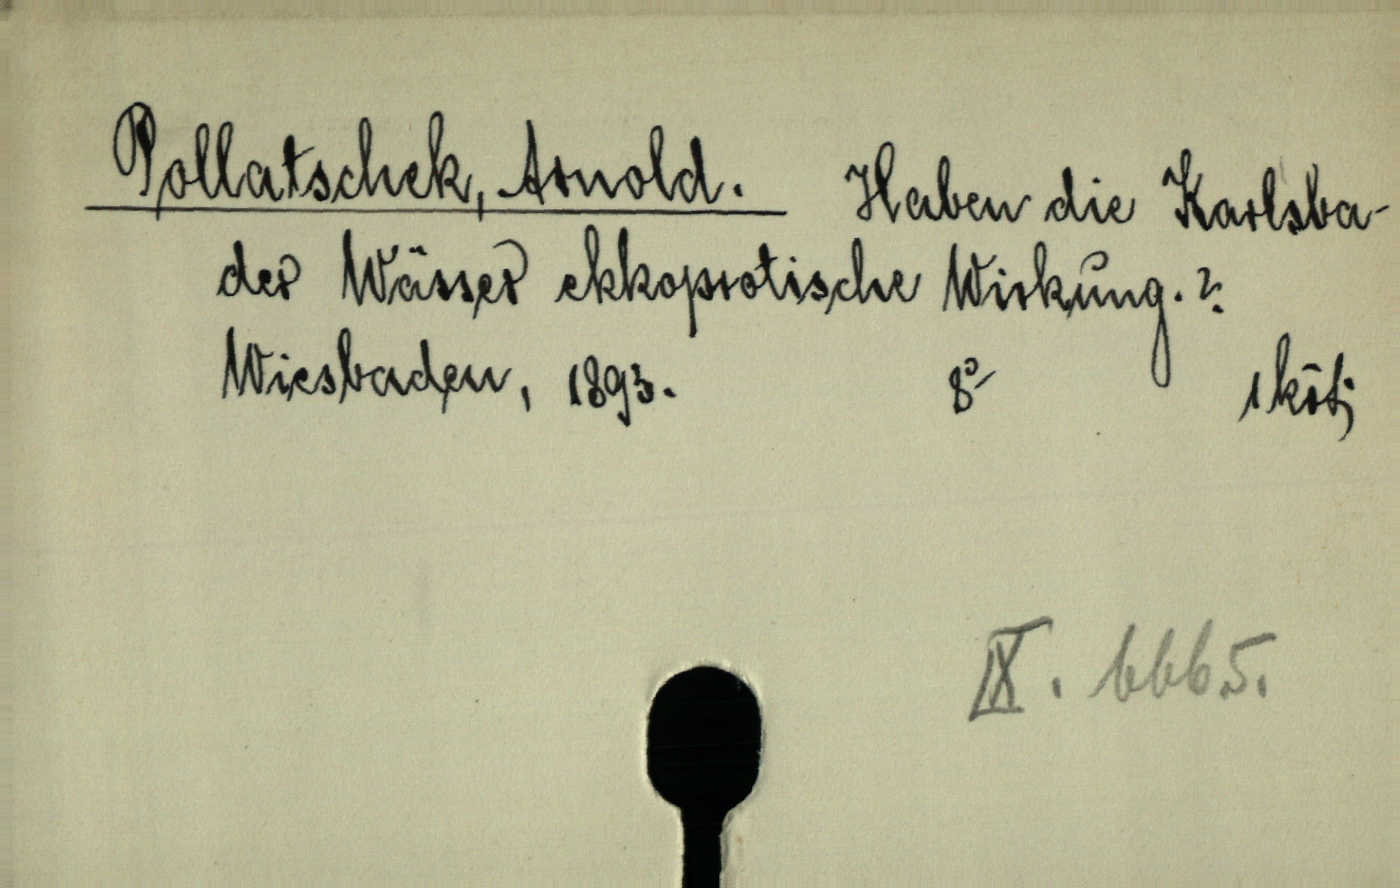 Pollatschek, Arnold. Haben die Karlsba-
der Wässer ekkoprotische Wirkung.?
Wiesbaden, 1893. 8° 1 köt;
IX. 6665.